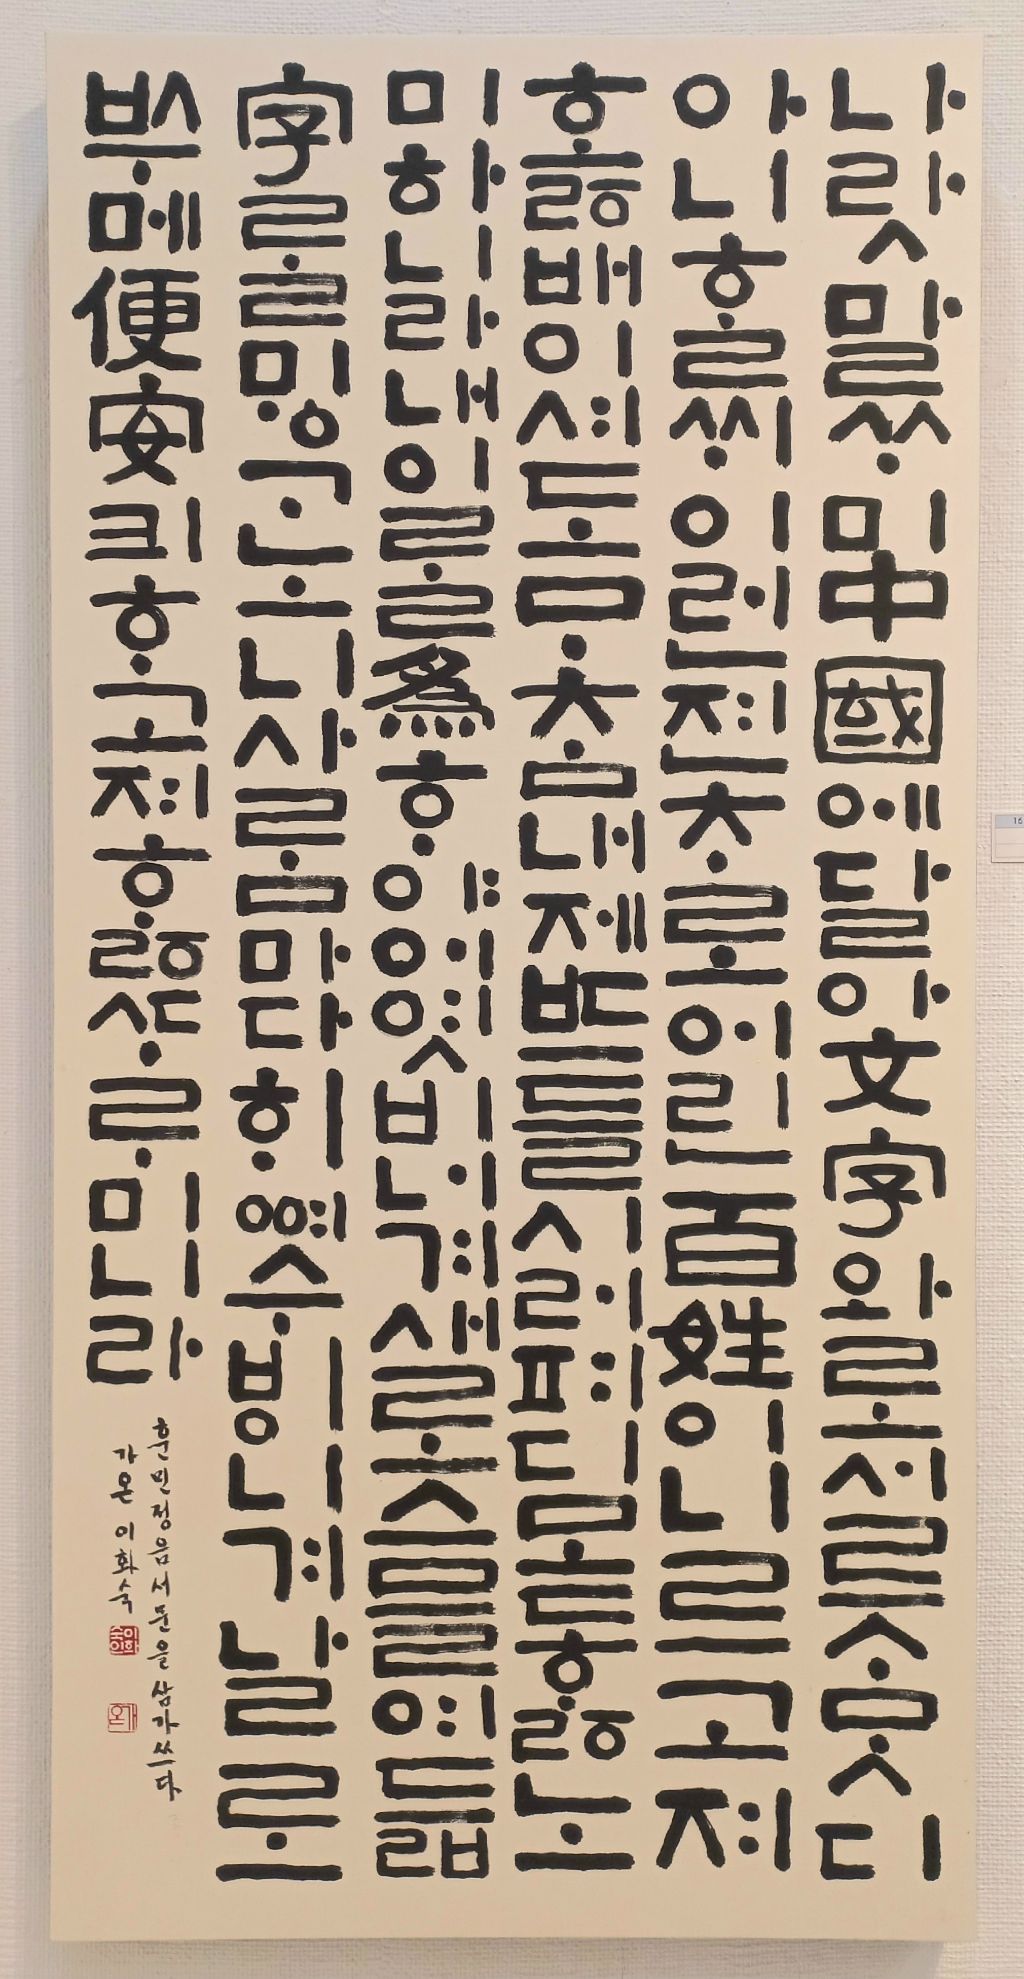 나랏말ᄊᆞ미中國에달아文字와로서르ᄉᆞᄆᆞᆺ디
아니ᄒᆞᆯᄊᆡ이런젼ᄎᆞ로어린百姓이니르고져
ᄒᆞᇙ배이셔도ᄆᆞᄎᆞᆷ내제ᄠᅳ들시러펴디몯ᄒᆞᇙ노
미하니라내이ᄅᆞᆯ爲ᄒᆞ야어엿비너겨새로스믈여듧
字ᄅᆞᆯᄆᆡᇰᄀᆞ노니사ᄅᆞᆷ마다ᄒᆡᅇᅧ수ᄫᅵ니겨날로
ᄡᅮ메便安킈ᄒᆞ고져ᄒᆞᇙᄯᆞᄅᆞ미니라
훈민정음서문을삼가쓰다
가온 이화숙